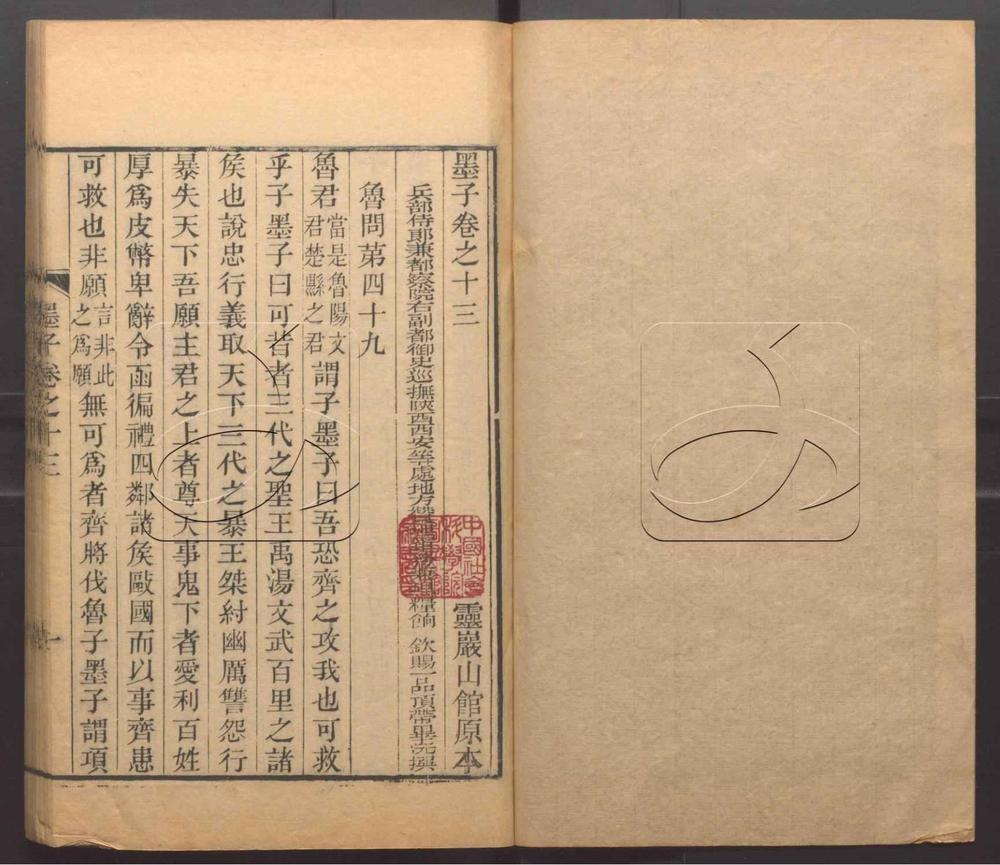 墨子卷之十三 靈巖山館原本
兵部侍郎兼都察院右副都御史巡撫陝西西安等處地方 糧餉 欽賜一品頂帶畢沅撰
魯問第四十九
魯君當是魯陽文君楚縣之君謂子墨子曰吾恐齊之攻我也可救
乎子墨子曰可昔者三代之聖王禹湯文武百里之諸
矦也說忠行義取天下三代之暴王桀紂幽厲讐怨行
暴失天下吾願主君之上者尊天事鬼下者愛利百姓
厚爲皮幣卑辭令亟徧禮四鄰諸矦敺國而以事齊患
可救也非願言非此之爲願無可爲者齊將伐魯子墨子謂項
墨子卷之十三 一
中國社會科學院